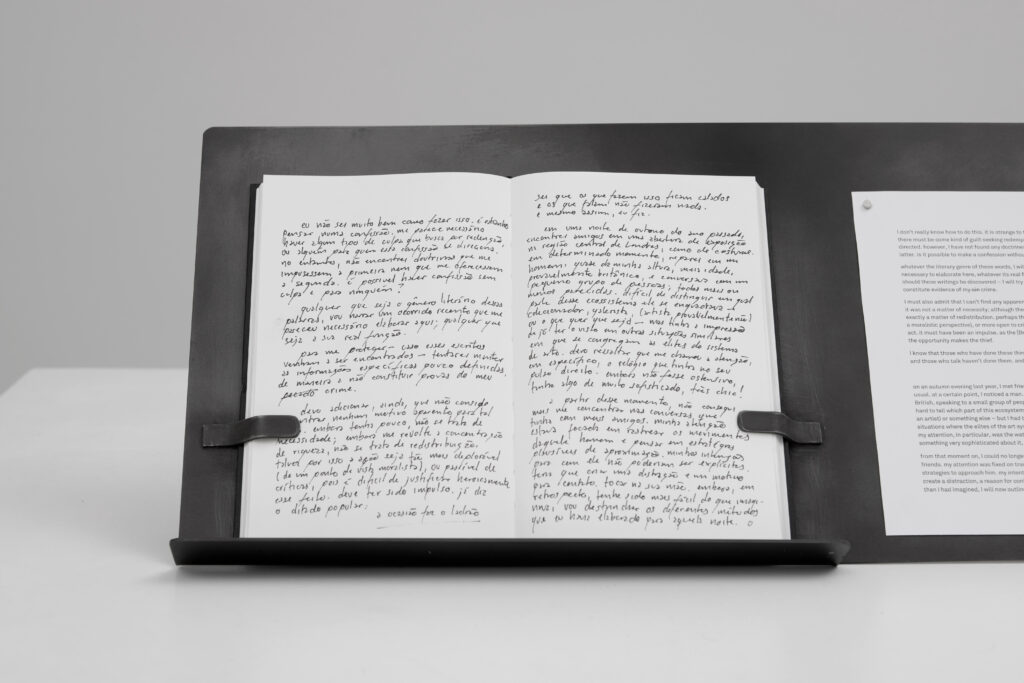 eu não sei muito bem como fazer isso. é estranho
pensar numa confissão. me parece necessário
haver algum tipo de culpa que busca por redenção,
ou alguém para quem esta confissão se direciona.
no entanto, não encontrei doutrinas que me
impusessem a primeira nem que me oferecessem
a segunda. é possível haver confissão sem
culpa e para ninguém?
qualquer que seja o gênero literário dessas
palavras, vou narrar um ocorrido recente que me
pareceu necessário elaborar aqui, qualquer que
seja a sua real função.
para me proteger – caso esses escritos
venham a ser encontrados – tentarei manter
as informações específicas pouco definidas,
de maneira a não constituir provas do meu
pecado crime.
devo adicionar, ainda, que não consigo
encontrar nenhum motivo aparente para tal
embora tenha pouco, não se trata de
necessidade; embora me revolte a concentração
de riqueza, não se trata de redistribuição.
talvez por isso a ação seja tão mais deplorável
(de um ponto de vista moralista), ou passível de
críticas, pois é difícil de justificar heroicamente
esse feito. deve ter sido impulso. já diz
o ditado popular:
a ocasião faz o ladrão
sei que os que fazem isso ficam calados
e os que falam não fizeram nada.
e mesmo assim, eu fiz.
em uma noite de outono do ano passado,
encontrei amigos em uma abertura de exposição
na região central de Londres, como de costume.
em determinado momento, reparei em um
homem: quase da minha altura, meia idade,
provavelmente britânico, e conversava com um
pequeno grupo de pessoas; todas mais ou
menos parecidas. difícil de distinguir em qual
parte desse ecossistema ele se enquadrava –
colecionador, galerista, (artista, provavelmente não)
ou o que quer que seja – mas tinha a impressão
de já ter o visto em outras situações similares
em que se congregam as elites do sistema
de arte. devo ressaltar que me chamou a atenção,
em específico, o relógio que tinha no seu
pulso direito. embora não fosse ostensivo,
tinha algo de muito sofisticado, três chic!
a partir desse momento, não consegui
mais me concentrar nas conversas que
tinha com meus amigos. minha atenção
estava focada em rastrear os movimentos
daquele homem e pensar em estratégias
plausíveis de aproximação. minhas intenções
para com ele não poderiam ser explícitas.
teria que criar uma distração e um motivo
para contato, tocar na sua mão. embora, em
retrospecto, tenha sido mais fácil do que imagi-
nava, vou destrinchar os diferentes métodos
que eu havia elaborado para aquela noite. o
I don't really know how to do this. it is strange to
there must be some kind of guilt seeking redemp
directed. however, I have not found any doctrine
latter. is it possible to make a confession without
whatever the literary genre of these words, I will
necessary to elaborate here, whatever its real f
should these writings be discovered – I will try
constitute evidence of my sin crime.
I must also admit that I can't find any apparen
it was not a matter of necessity; although the
exactly a matter of redistribution. perhaps th
a moralistic perspective), or more open to cr
act. it must have been an impulse. as the
the opportunity makes the thief.
I know that those who have done these thin
and those who talk haven't done them. and
on an autumn evening last year, I met frien
usual. at a certain point, I noticed a man.
British, speaking to a small group of peop
hard to tell which part of this ecosystem
an artist) or something else – but I had t
situations where the elites of the art sys
my attention, in particular, was the watc
something very sophisticated about it,
from that moment on, I could no longe
friends. my attention was fixed on trac
strategies to approach him. my intenti
create a distraction, a reason for con
than I had imagined, I will now outlin